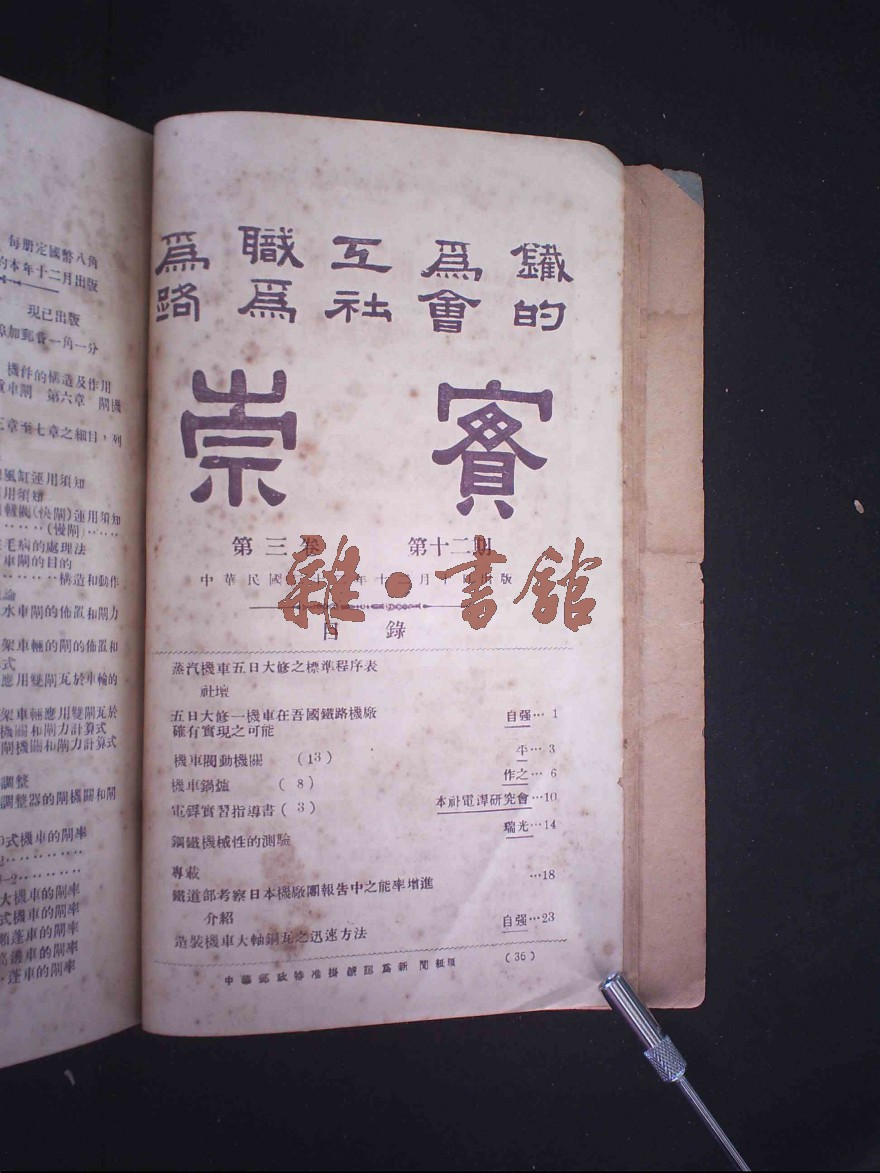 每册定國幣八角
本年十二月出版
現已出版
加郵費一角一分
機件的構造及作用
車閘 第六章 閘機
章至七章之細目，列
風缸運用須知
用須知
(快閘)運用須知
(慢閘)……
毛病的處理法
車閘的目的
………構造和動作
論
水車閘的佈置和閘力
架車輛的閘的佈置和
式
應用雙閘瓦於車輪的
架車輛應用雙閘瓦於
機關和閘力計算式
閘機關和閘力計算式
調整
調整器的閘機關和閘
式機車的閘率
大機車的閘率
式機車的閘率
蓬車的閘率
高邊車的閘率
蓬車的閘率
爲職工爲鐵
路爲社會的
崇實
第三卷 第十二期
中華民國 十 年十二月 出版
雜·書館
目錄
蒸汽機車五日大修之標準程序表
社壇
五日大修一機車在吾國鐵路機廠
確有實現之可能 自强… 1
機車閥動機關 (13) 平… 3
機車鍋爐 ( 8) 作之… 6
電銲實習指導書 ( 3) 本社電銲研究會…10
鋼鐵機械性的測驗 瑞光…14
專載
鐵道部考察日本機廠團報告中之能率增進 …18
介紹
造裝機車大軸銅瓦之迅速方法 自强…23
中華郵政特准掛號認爲新聞紙類 (36)